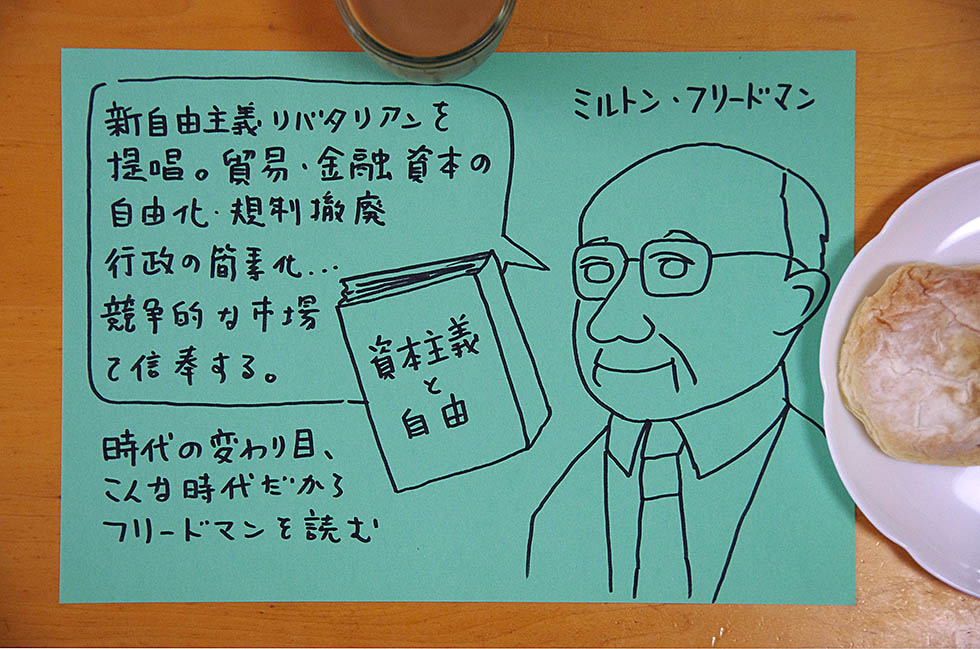 ミルトン・フリードマン
新自由主義・リバタリアンを
提唱。貿易・金融 資本の
自由化・規制撤廃
行政の簡素化…
競争的な市場
て信奉する。
資本主義
と
自由
時代の変わり目、
こんな時代だから
フリードマンを読む